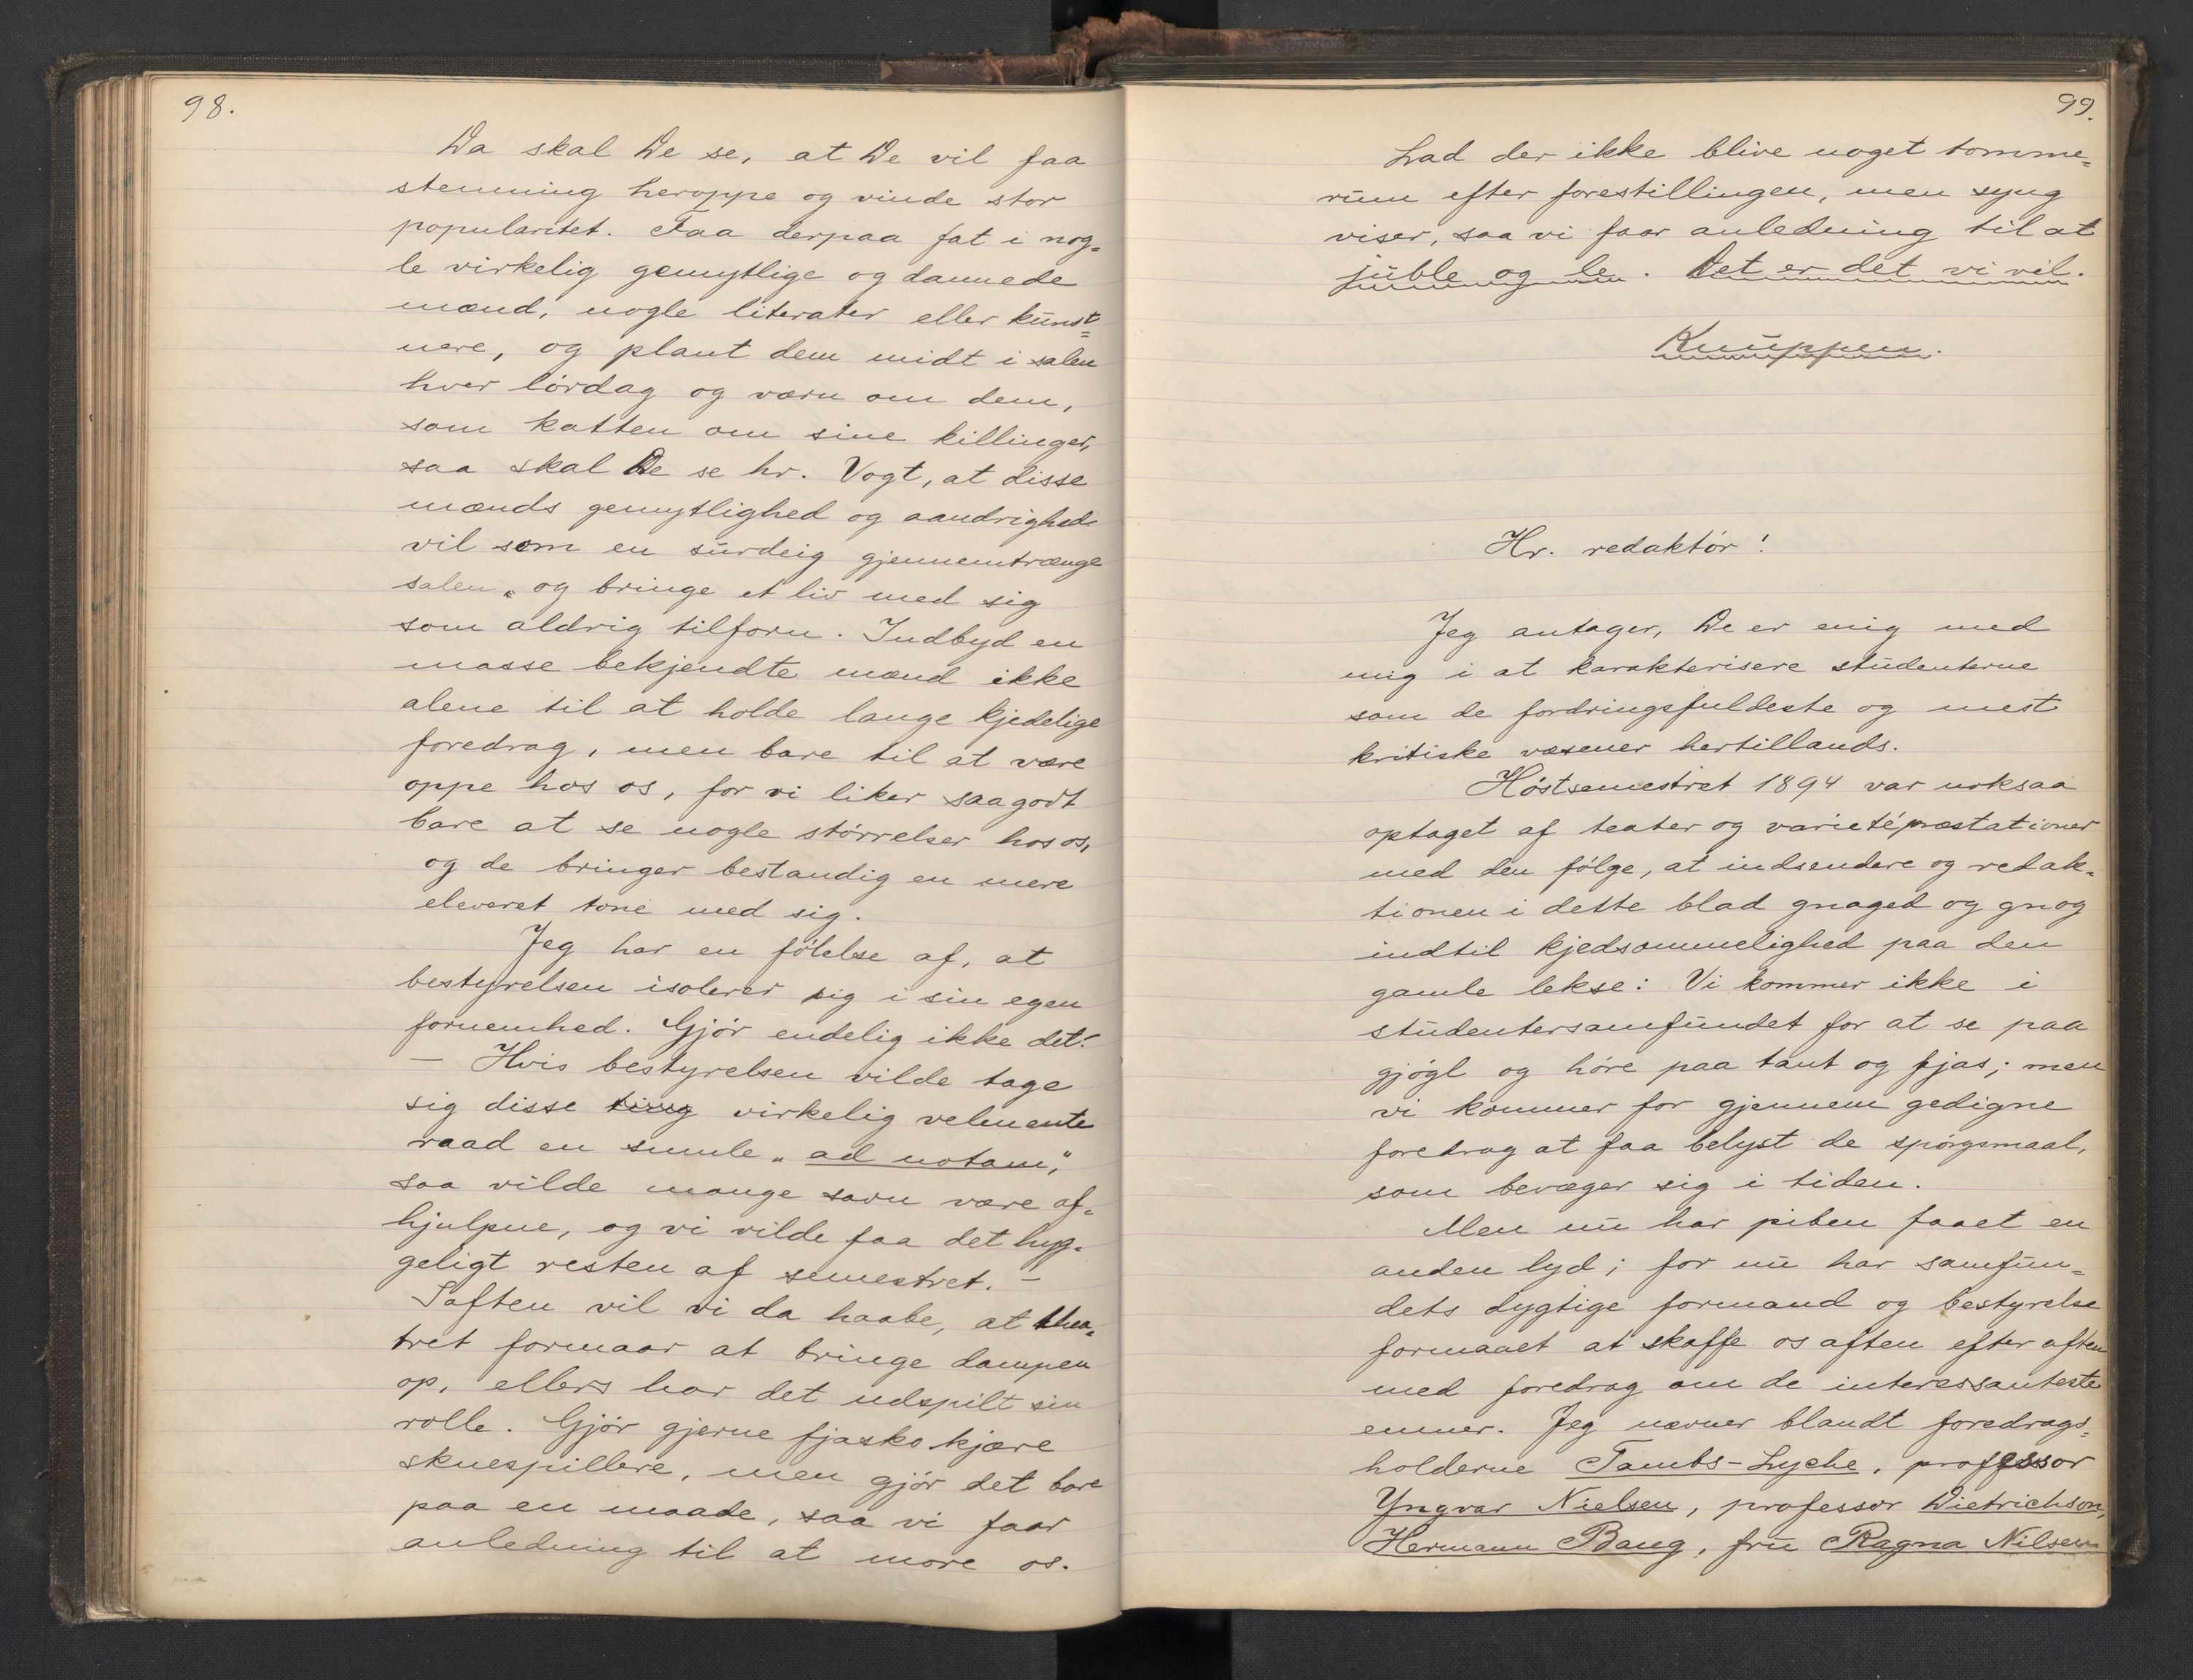 98.
Da skal De se, at De vil faa
stemning heroppe og vinde stor
popularitet. Faa derpaa fat i nog-
le virkelig gemytlige og dannede
mænd, nogle literater eller kunst=
nere, og plant dem midt i salen
hver lørdag og værn om dem,
som katten om sine killinger,
saa skal De se hr. Vogt, at disse
mænds gemytlighed og aandrighed
vil som en surdeig gjennemtrænge
salen og bringe et liv med sig
som aldrig tilforn. Indbyd en
masse bekjendte mænd ikke
alene til at holde lange kjedelige
foredrag, men bare til at være
oppe hos os, for vi liker saa godt
bare at se nogle størrelser hos os,
og de bringer bestandig en mere
eleveret tone med sig.
Jeg har en følelse af, at
bestyrelsen isolerer sig i sin egen
fornemhed. Gjør endelig ikke det!
— Hvis bestyrelsen vilde tage
sig disse ting virkelig velmente
raad en smule „ad notam",
saa vilde mange savn være af-
hjulpne, og vi vilde faa det hyg-
geligt resten af semestret. —
Iaften vil vi da haabe, at thea-
tret formaar at bringe dampen
op, ellers har det udspilt sin
rolle. Gjør gjerne fjasko kjære
skuespillere, men gjør det bare
paa en maade, saa vi faar
anledning til at more os.
99.
Lad der ikke blive noget tomme=
rum efter forestillingen, men syng
viser, saa vi faar anledning til at
juble og le. Det er det vi vil.
Knuppen.
Hr. redaktør!
Jeg antager, De er enig med
mig i at karakterisere studenterne
som de fordringsfuldeste og mest
kritiske væsener hertillands.
Høstsemestret 1894 var noksaa
optaget af teater og varietépræstationer
med den følge, at indsendere og redak-
tionen i dette blad gnaged og gnog
indtil kjedsommelighed paa den
gamle lekse: Vi kommer ikke i
studentersamfundet for at se paa
gjøgl og høre paa tant og fjas; men
vi kommer for gjennem gedigne
foredrag at faa belyst de spørgsmaal,
som bevæger sig i tiden.
Men nu har piben faaet en
anden lyd; for nu har samfun=
dets dygtige formand og bestyrelse
formaaet at skaffe os aften efter aften
med foredrag om de interessanteste
emner. Jeg nævner blandt foredrags=
holderne Tambs-Lyche, professor
Yngvar Nielsen, professor Dietrichson,
Hermann Bang, fru Ragna Nilsen